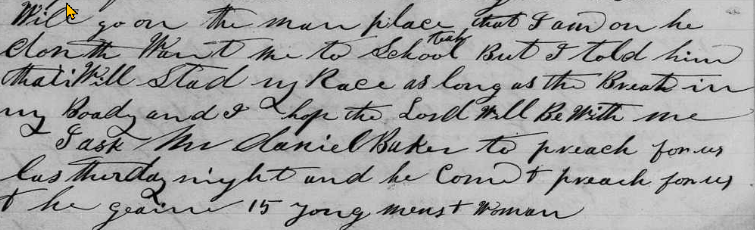 Will go on the man place that I am on he
donth Want me to School teah But I told him
that i Will Stad my Race as long as the Breath in
my Boady and I hope the Lord Will Be With me
I ask Mr daniel Baker to preach for us
las thurday night and he Come & preach for us
& he geain 15 yong mens & Woman